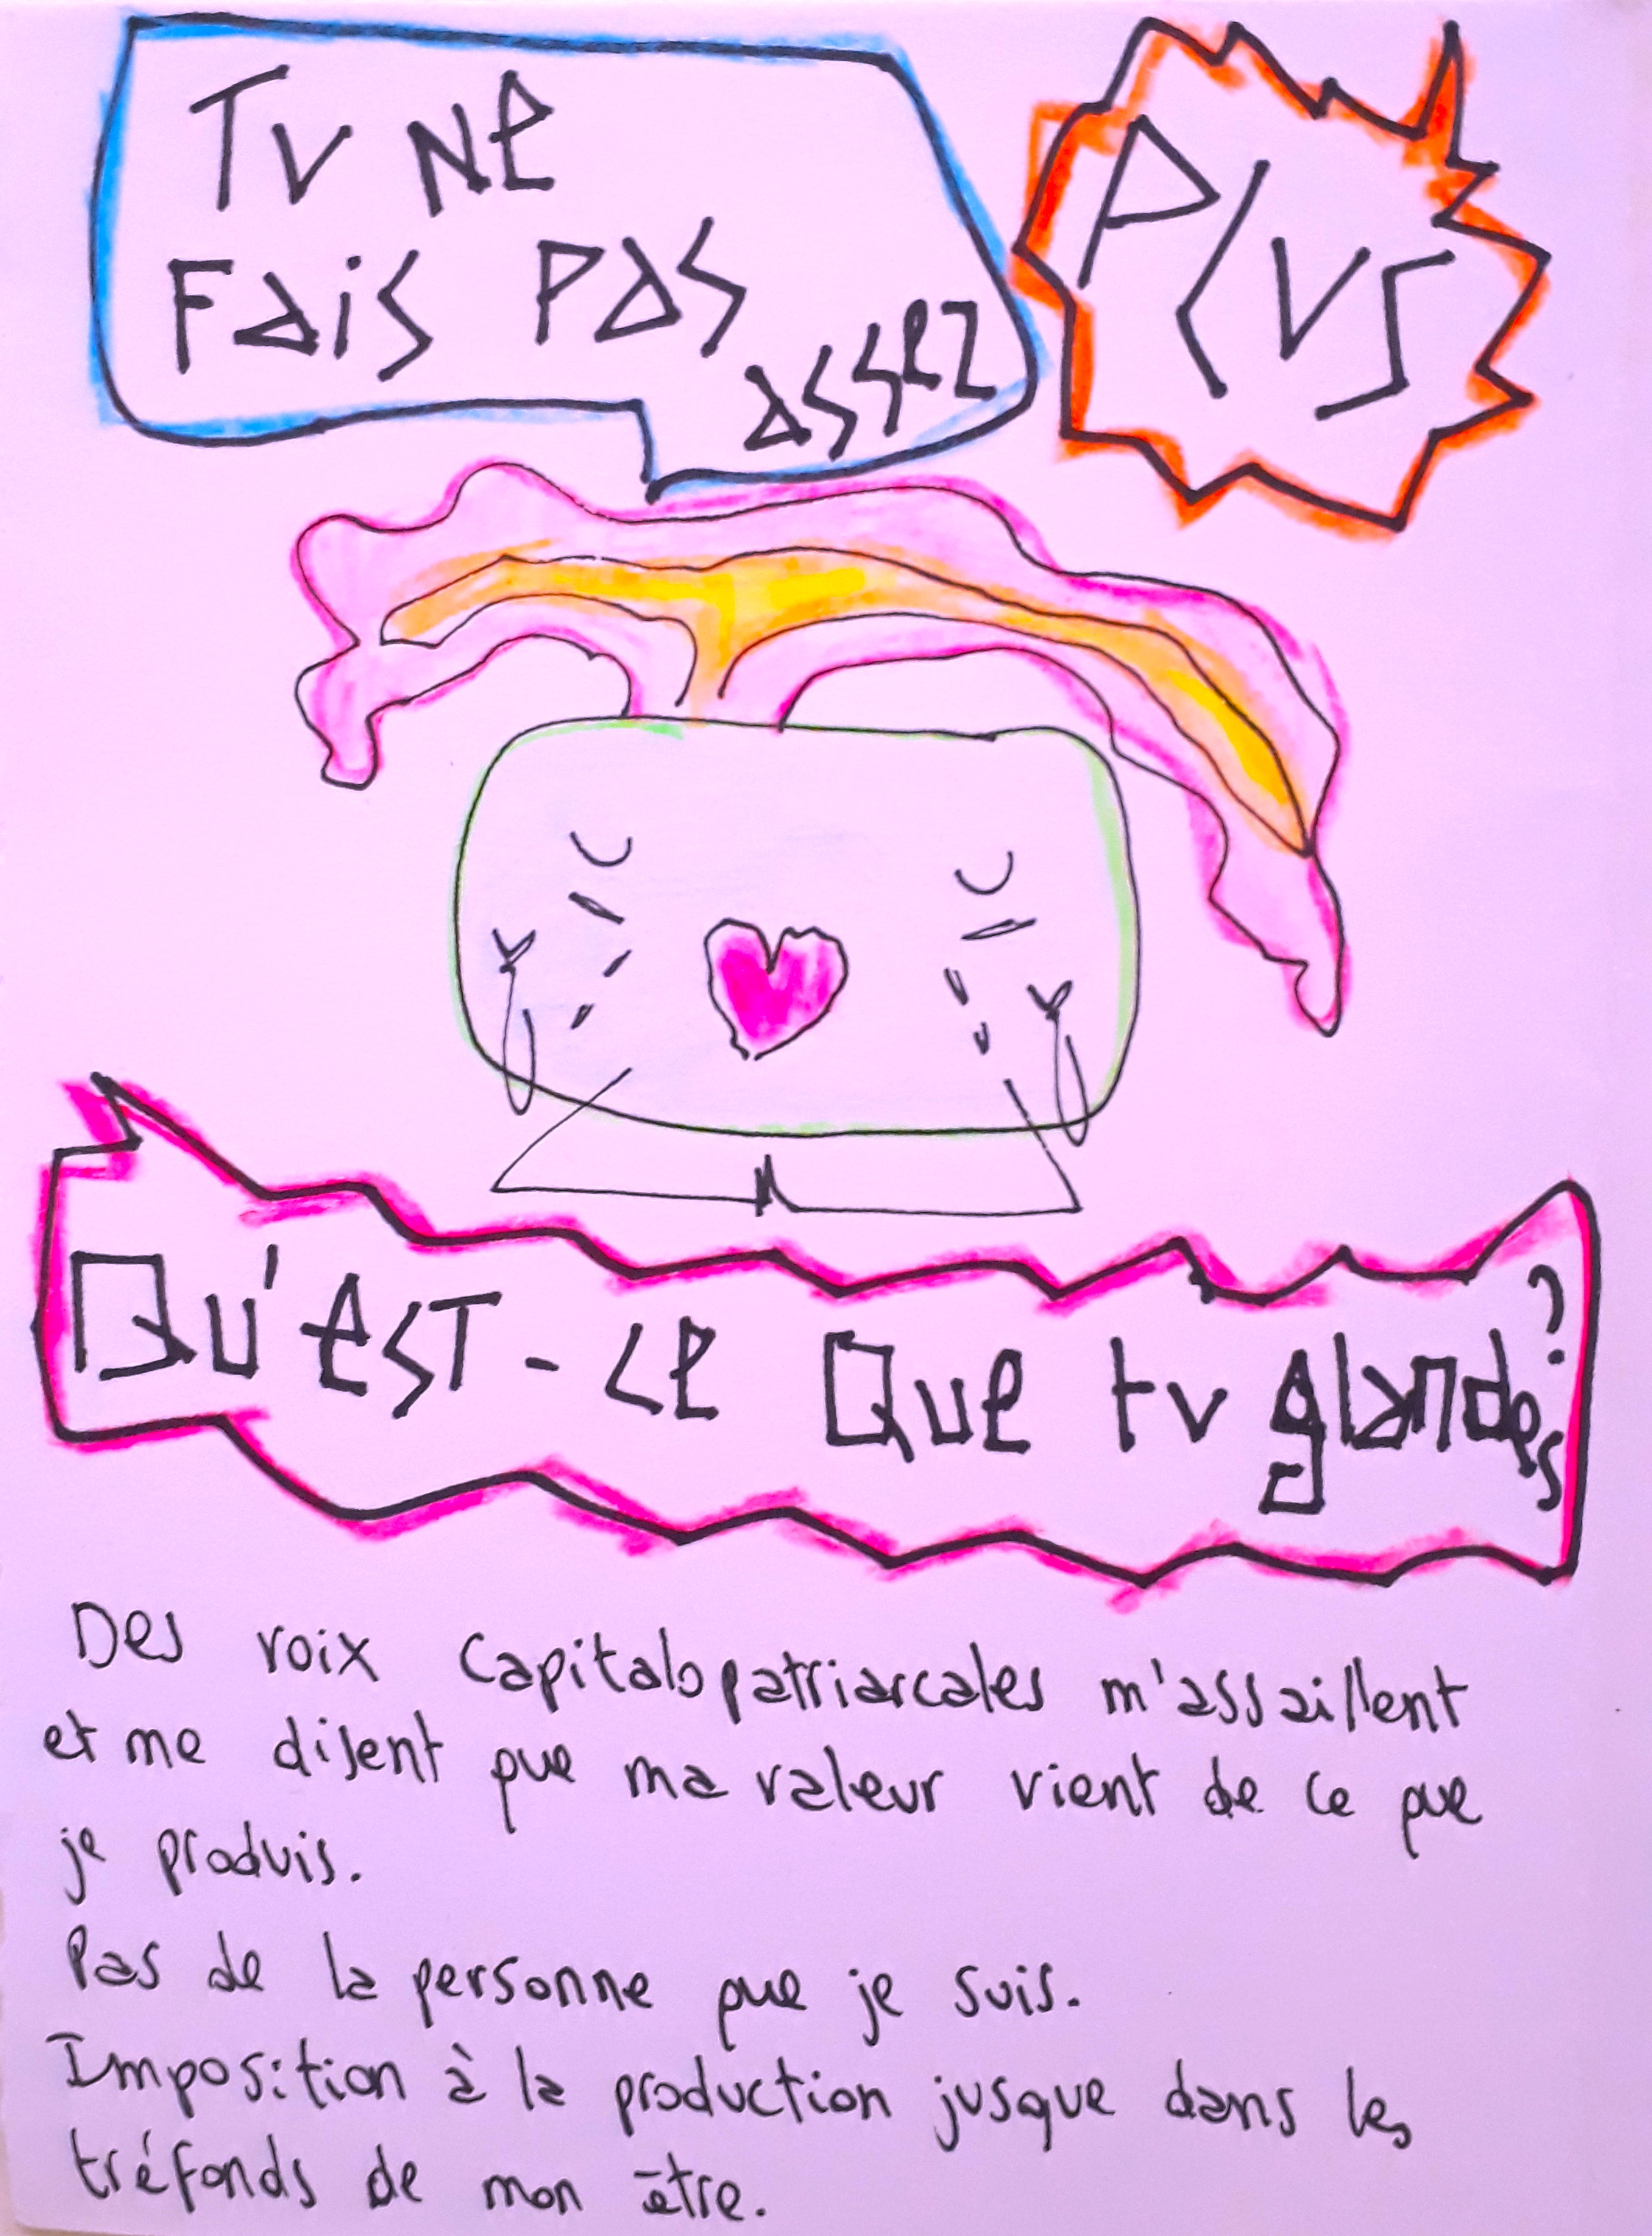 Tu ne
fais pas
assez
Plus
Qu'est-ce que tu glandes?
Des voix capitalopatriarcales m'assaillent
et me disent que ma valeur vient de ce que
je produis.
Pas de la personne que je suis.
Imposition à la production jusque dans les
tréfonds de mon être.